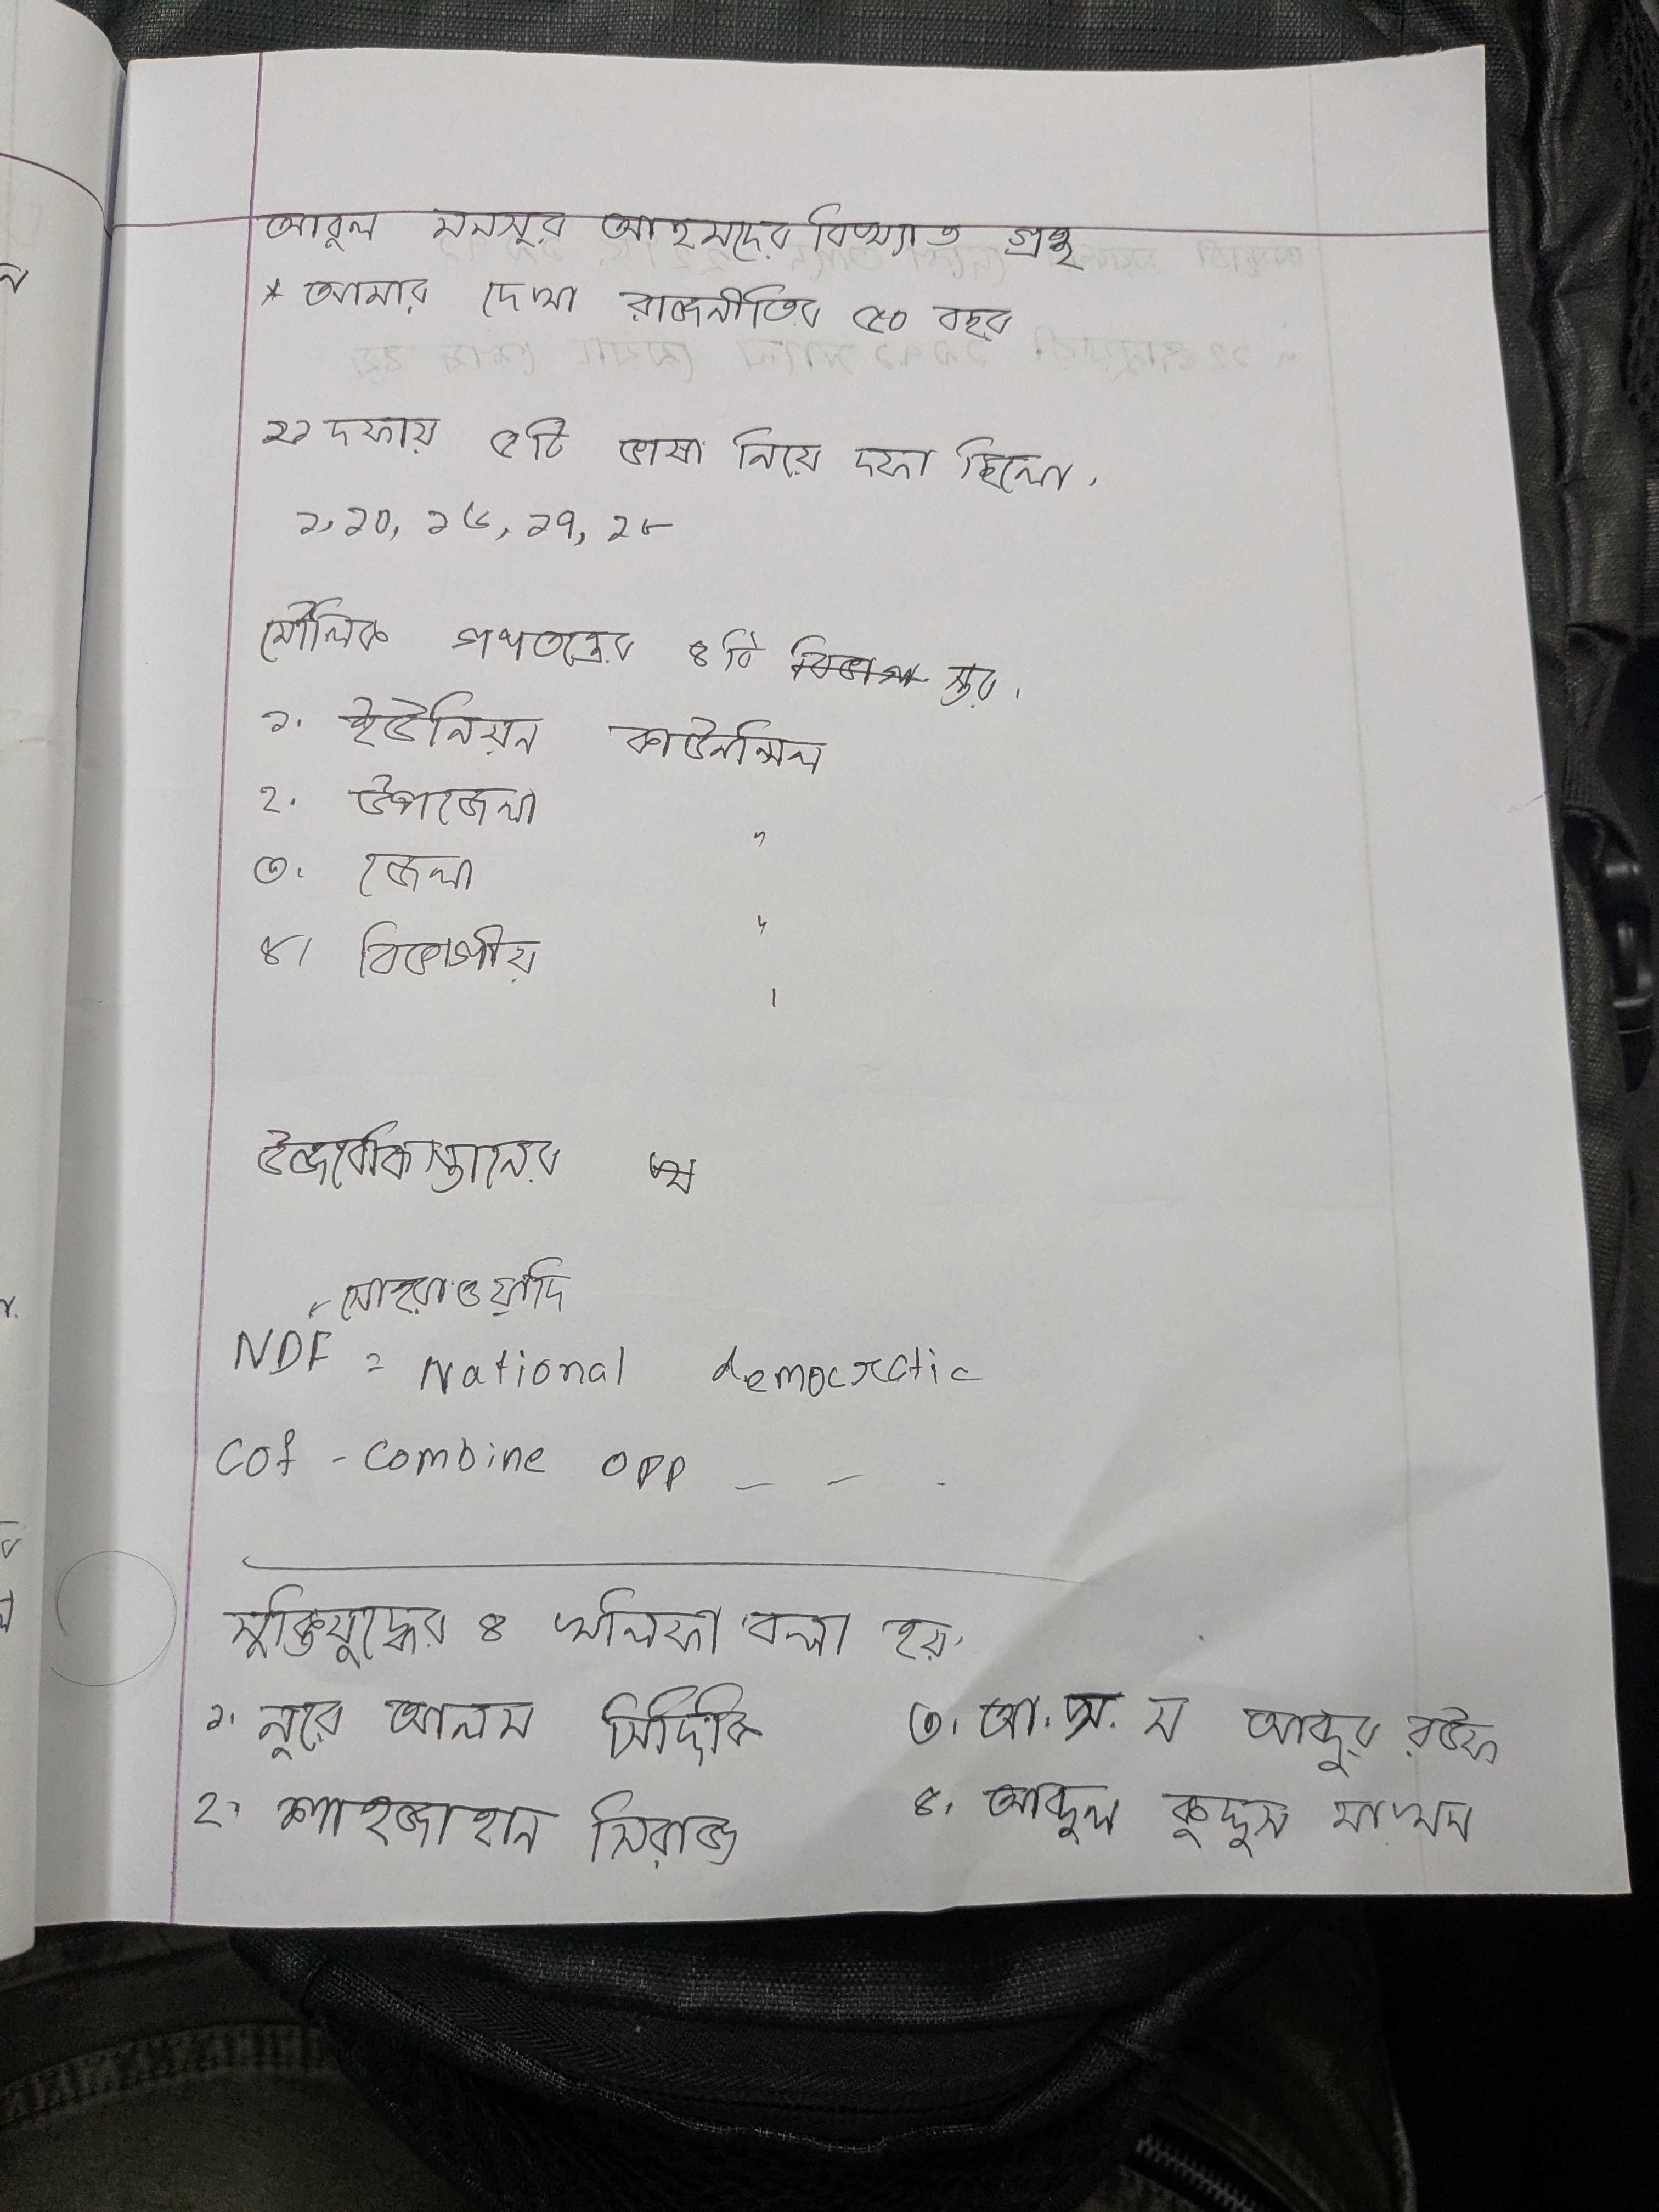 আবুল মনসুর আহমদের বিখ্যাত গ্রন্থ
* আমার দেখা রাজনীতির ৫০ বছর
২১ দফায় ৫টি ভাষা নিয়ে দফা ছিলো.
১, ১০, ১৬, ১৭, ১৮
মৌলিক গণতন্ত্রের ৪টি স্তর.
১. ইউনিয়ন কাউন্সিল
২. উপজেলা "
৩. জেলা "
৪। বিভাগীয় "
উজবেকিস্তানের
সোহরাওয়াদি
NDF = National democratic
COf - combine opp - - -
মুক্তিযুদ্ধের ৪ খলিফা বলা হয়
১. নূরে আলম সিদ্দিকি ৩. আ.স. ম আব্দুর রউফ
২. শাহজাহান সিরাজ ৪. আব্দুল কুদ্দুস মাখন